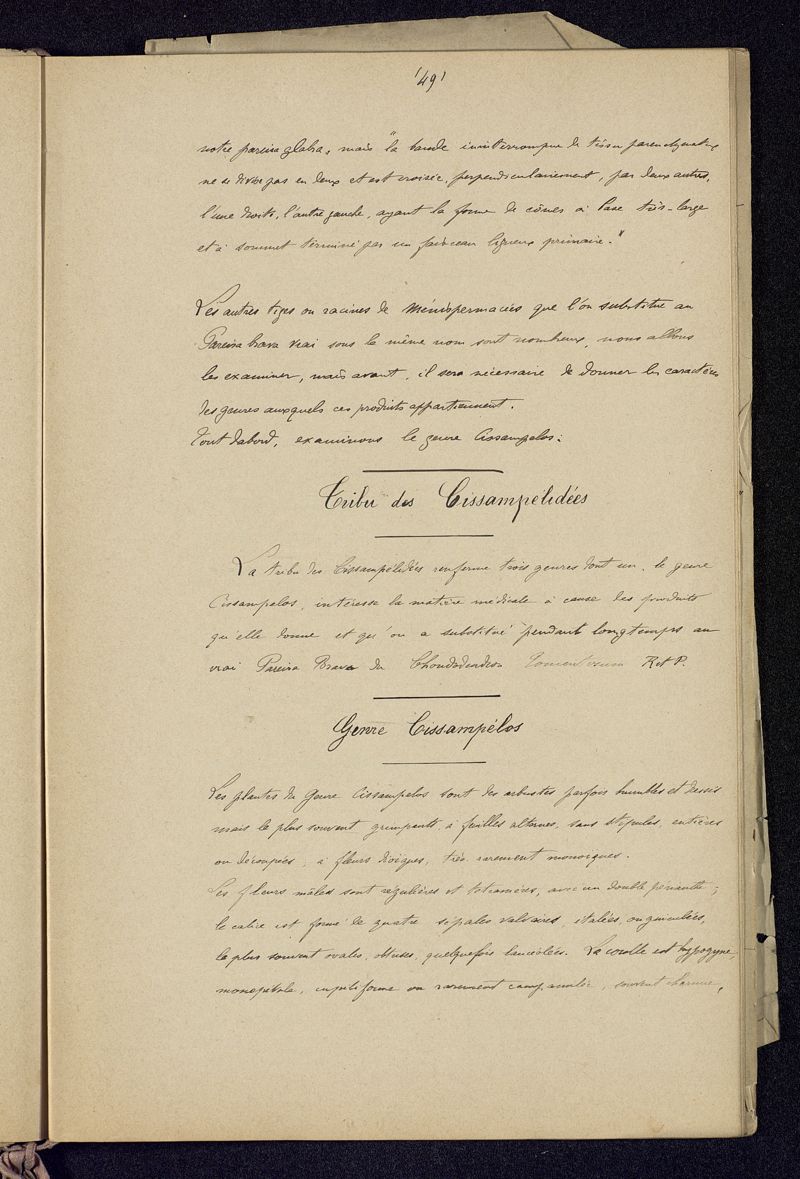 '49'
notre pareira glabra, mais "la bande ininterrompue de tissu parenchymateux
ne se divise pas en deux et est croisée, perpendiculairement, par deux autres,
l'une droite, l'autre gauche, ayant la forme de cônes à base très-large
et à sommet terminé par un faisceau ligneux primaire."
Les autres tiges ou racines de Ménispermacées que l'on substitue au
Pareira brava vrai sous le même nom sont nombreux, nous allons
les examiner, mais avant, il sera nécessaire de donner les caractères
des genres auxquels ces produits appartiennent.
Tout dabord, examinons le genre Cissampelos:
Tribu des Cissampelidées
La tribu des Cissampélidées renferme trois genres dont un, le genre
Cissampelos, intéresse la matière médicale à cause des produits
qu'elle donne et qu'on a substitué pendant longtemps au
vrai Pareira Brava du Chondodendron tomentosum R et P.
Genre Cissampélos
Les plantes du Genre Cissampelos sont des arbustes parfois humbles et dressés
mais le plus souvent grimpants, à feuilles alternes, sans stipules, entières
ou découpées, à fleurs dioïques, très rarement monoïques.
Les fleurs mâles sont régulières et tétramères, avec un double périanthe;
le calice est formé de quatre sépales valvaires, étalées, onguiculées,
le plus souvent ovales, obtuses, quelquefois lancéolées. La corolle est hypogyne,
monopétale, cupuliforme ou rarement campanulée, souvent charnue,